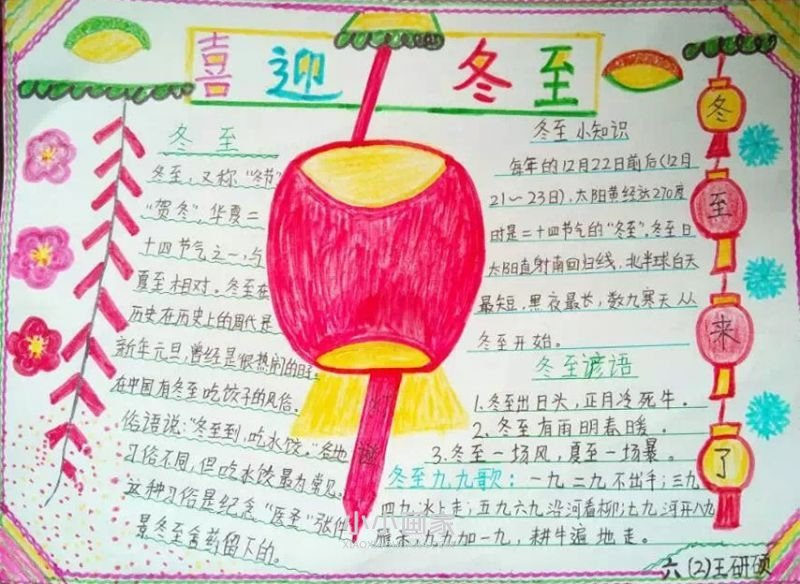 喜迎冬至
冬至
冬至，又称"冬节"
"贺冬"，华夏二
十四节气之一，与
夏至相对。冬至在
历史在历史上的周代是
新年元旦，曾经是很热闹的日子。
在中国有冬至吃饺子的风俗。
俗语说："冬至到，吃水饺。"各地
习俗不同，但吃水饺最为常见。
这种习俗是纪念"医圣"张仲
景冬至舍药留下的。
冬至小知识
每年的12月22日前后(12月
21～23日)，太阳黄经达270度
时是二十四节气的"冬至"。冬至日
太阳直射南回归线，北半球白天
最短，黑夜最长，数九寒天从
冬至开始。
冬至谚语
1、冬至出日头，正月冷死牛。
2、冬至有雨明春暖。
3、冬至一场风，夏至一场暴。
冬至九九歌：一九二九不出手；三九
四九冰上走；五九六九沿河看柳；七九河开八九
雁来；九九加一九，耕牛遍地走。
冬
至
来
了
小小画家
六(2)王研硕